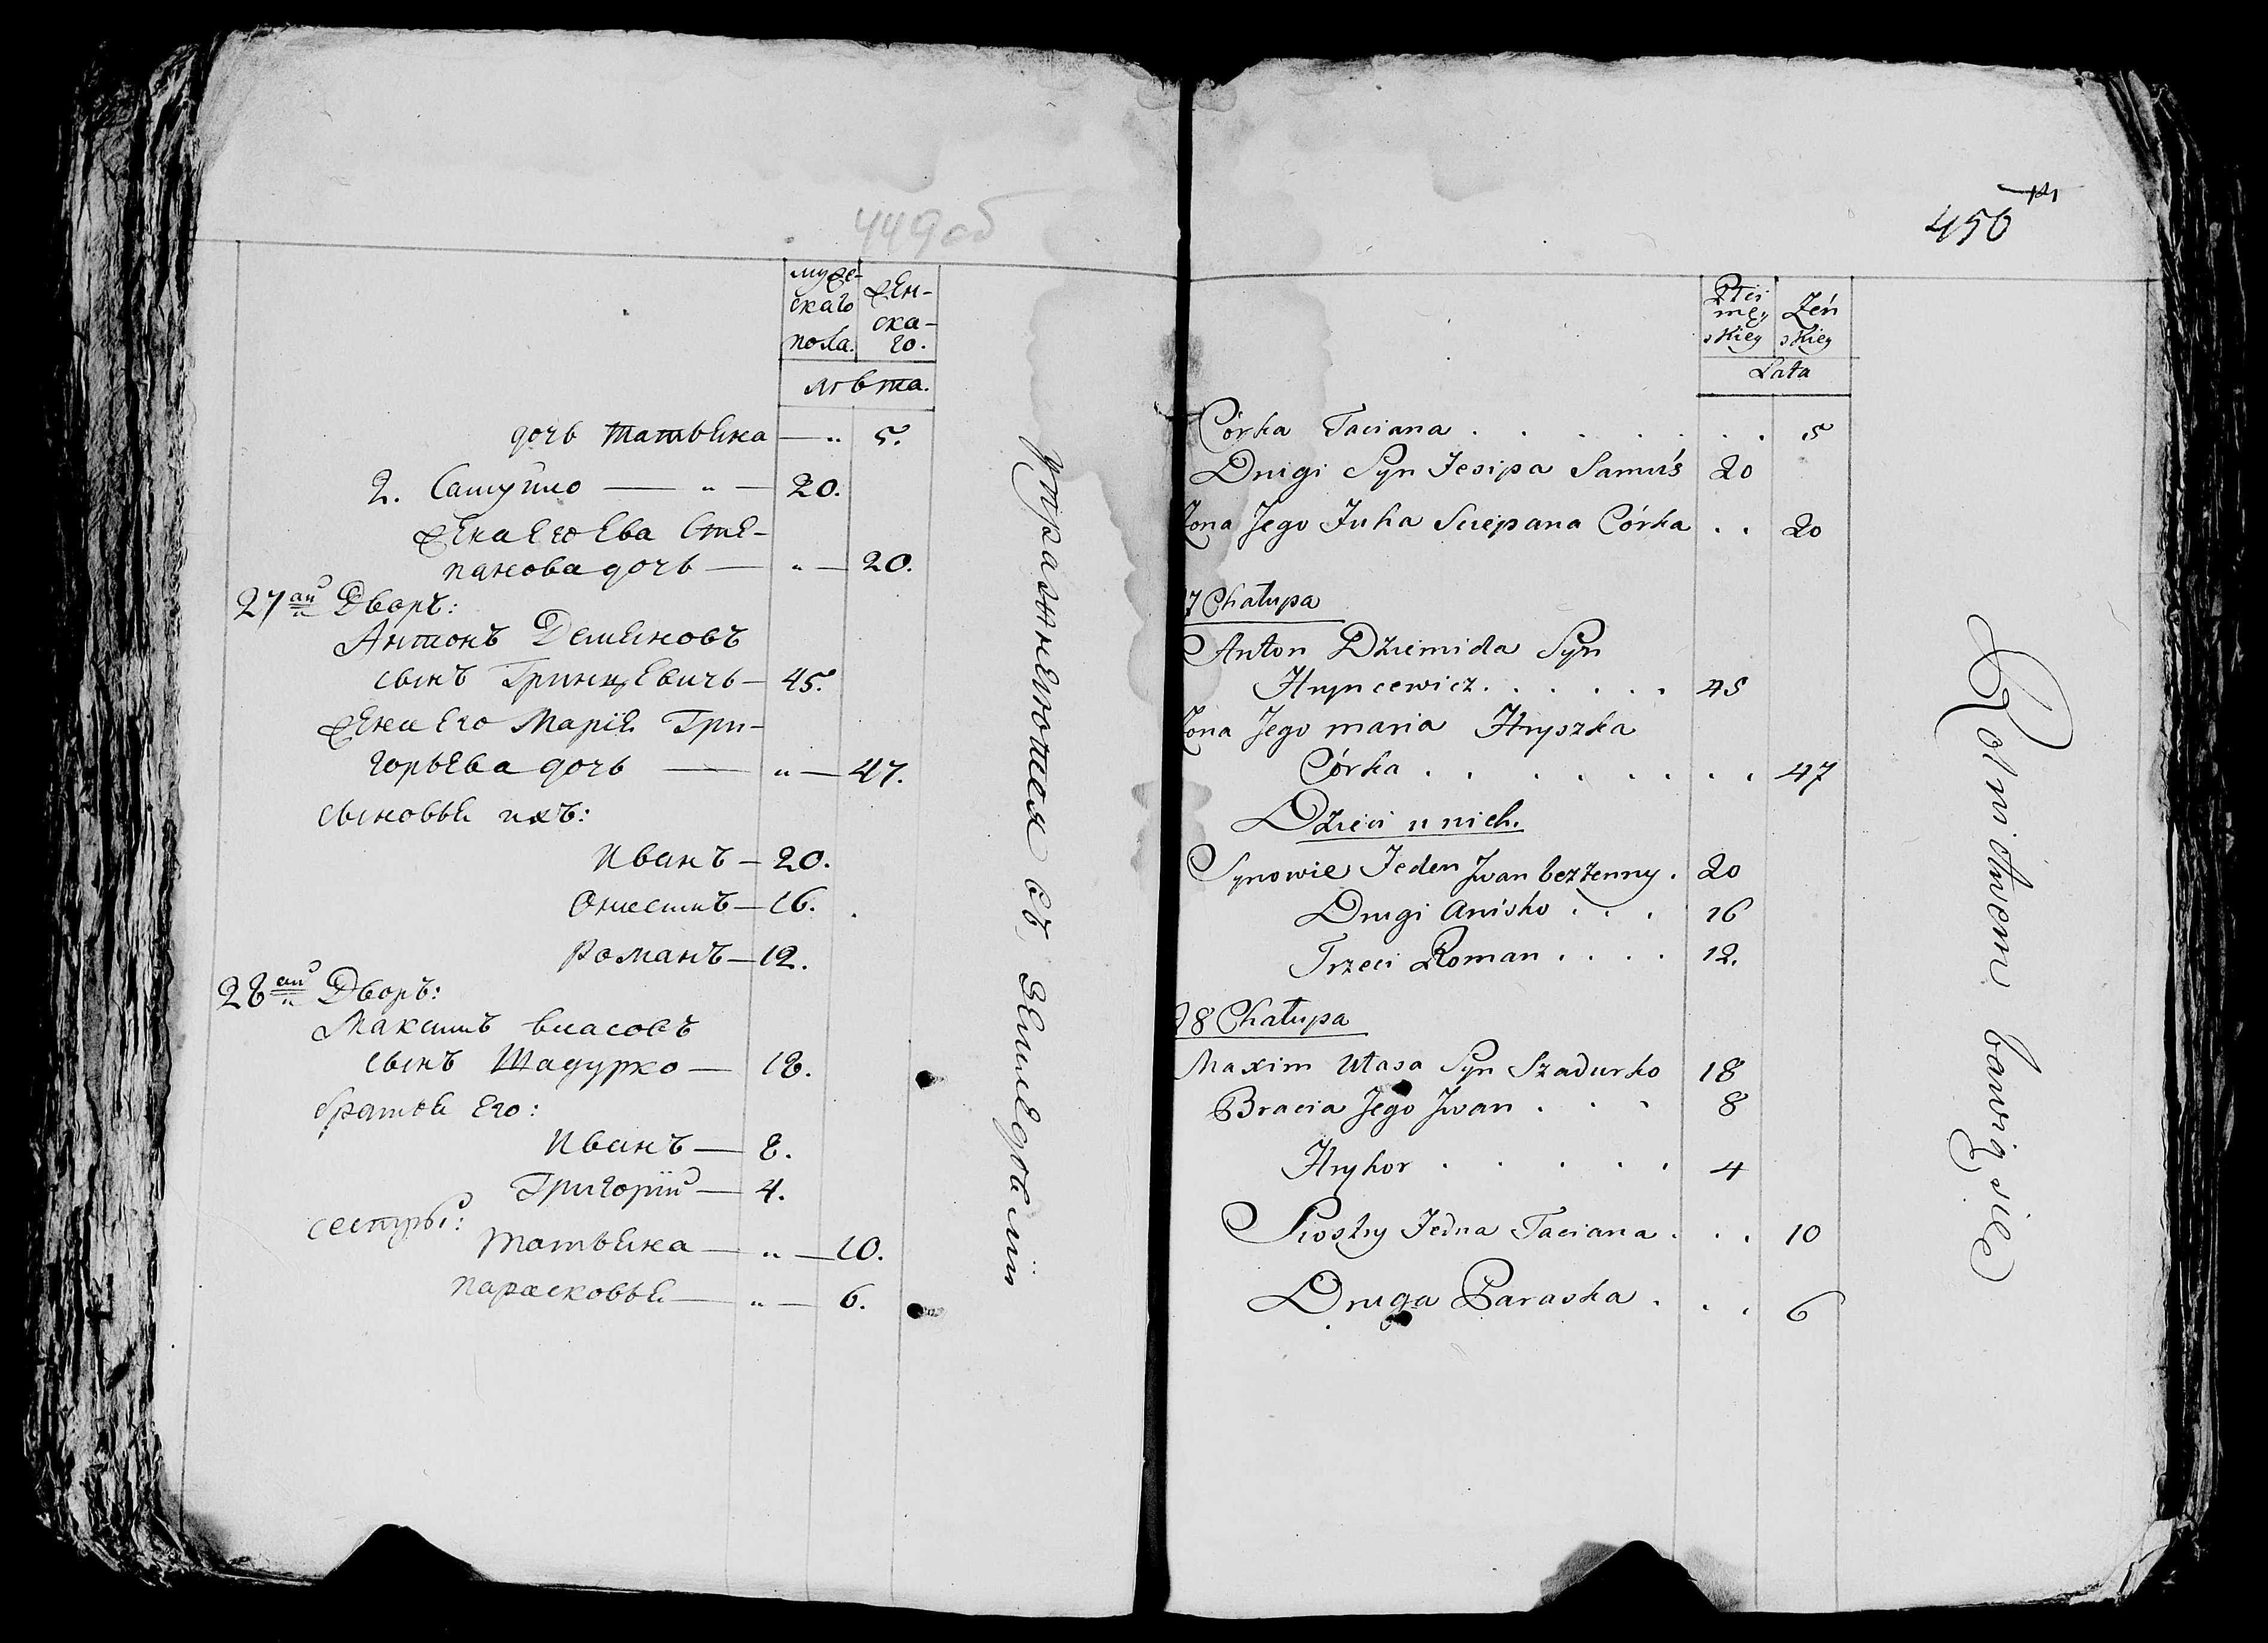 449об
муже-
скаго
пола.
жен-
ска-
го.
лѣта.
дочь Татьяна — „ 5.
2. Самуйло — „ — 20.
жена его Ева Сте-
панова дочь — „ — 20.
27ай Дворъ:
Антонъ Демьяновъ
сынъ Гринцевичь — 45.
жена его Марія Гри-
горьева дочь — „ — 47.
сыновья ихъ:
Иванъ — 20.
Онисимъ — 16.
Романъ — 12.
28ай Дворъ:
Максимъ Власовъ
сынъ Шадурко — 18.
братья его:
Иванъ — 8.
Григорій — 4.
сестры:
Татьяна — „ — 10.
Парасковья — „ — 6.
Упражняющаяся въ земледѣліи
450
Płci
mę-
skiey
Żeń
skiey
Lata
Córka Taciana . . . . . . . 5
Drugi Syn Jesipa Samuś 20
Żona Jego Juha Sciepana Córka . . 20
7 Chałupa
Anton Dziemida Syn
Hryncewicz . . . . . . 45
Żona Jego maria Hryszka
Córka . . . . . . . . 47
Dzieci u nich.
Synowie Jeden Jwan bezżenny . 20
Drugi Anisko . . . 16
Trzeci Roman . . . . 12.
28 Chałupa
Maxim Ułasa Syn Szadurko 18
Bracia Jego Jwan . . . 8
Hryhor . . . . . 4
Siostry Jedna Taciana . . . 10
Druga Paraska . . . 6
Rolnictwem bawią się